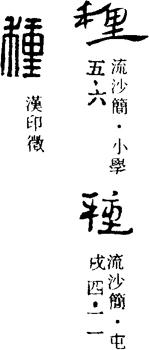 種
流沙簡·小學
五·六
種
流沙簡·屯
戍四·一一
種
漢印徵